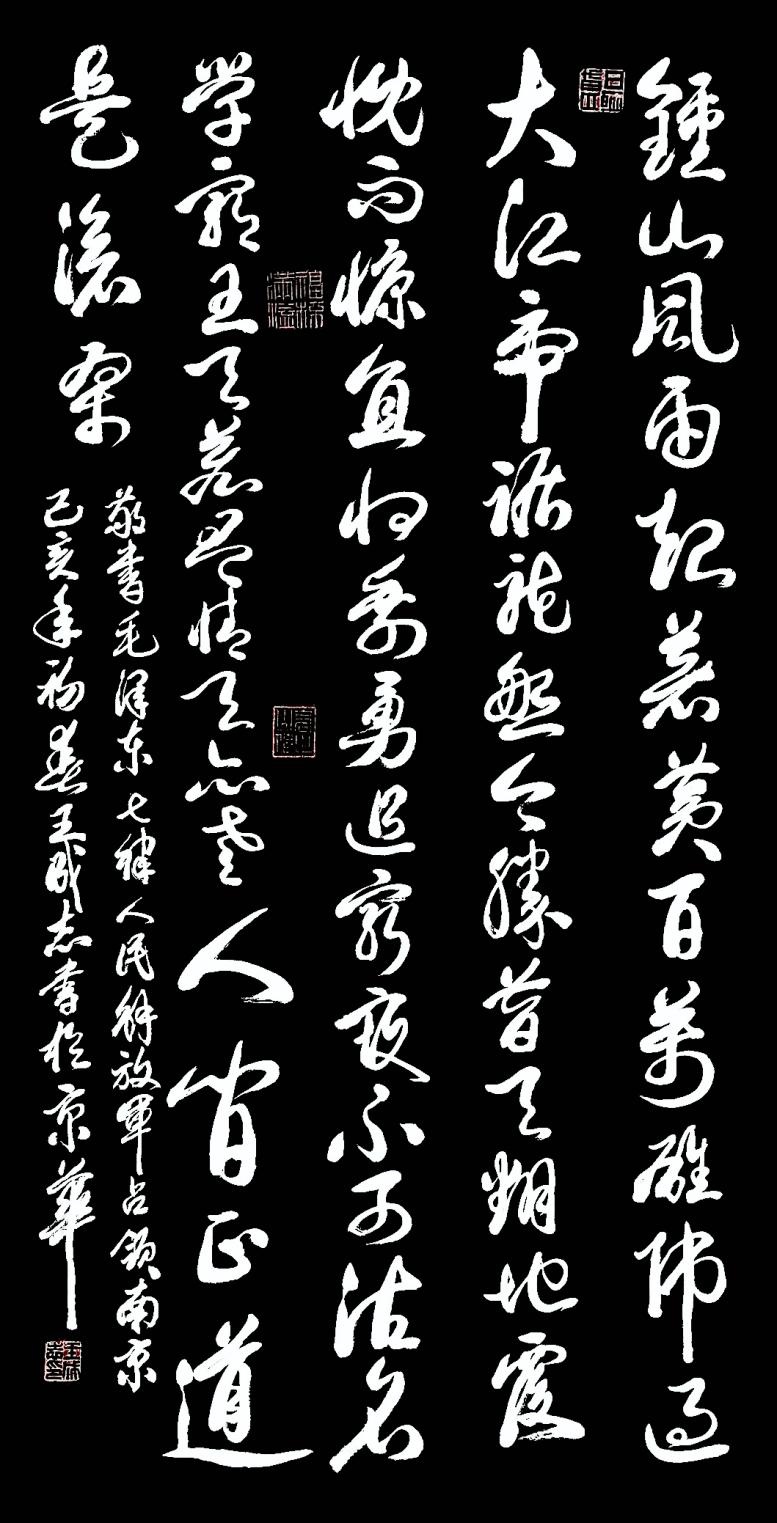 鍾山風雨起蒼黄百萬雄师過
大江虎踞龍盤今勝昔天翻地覆
慨而慷宜将剩勇追穷寇不可沽名
学霸王天若有情天亦老人间正道
是滄桑
敬書毛泽东七律人民解放軍占领南京
己亥年初春王成志書於京華